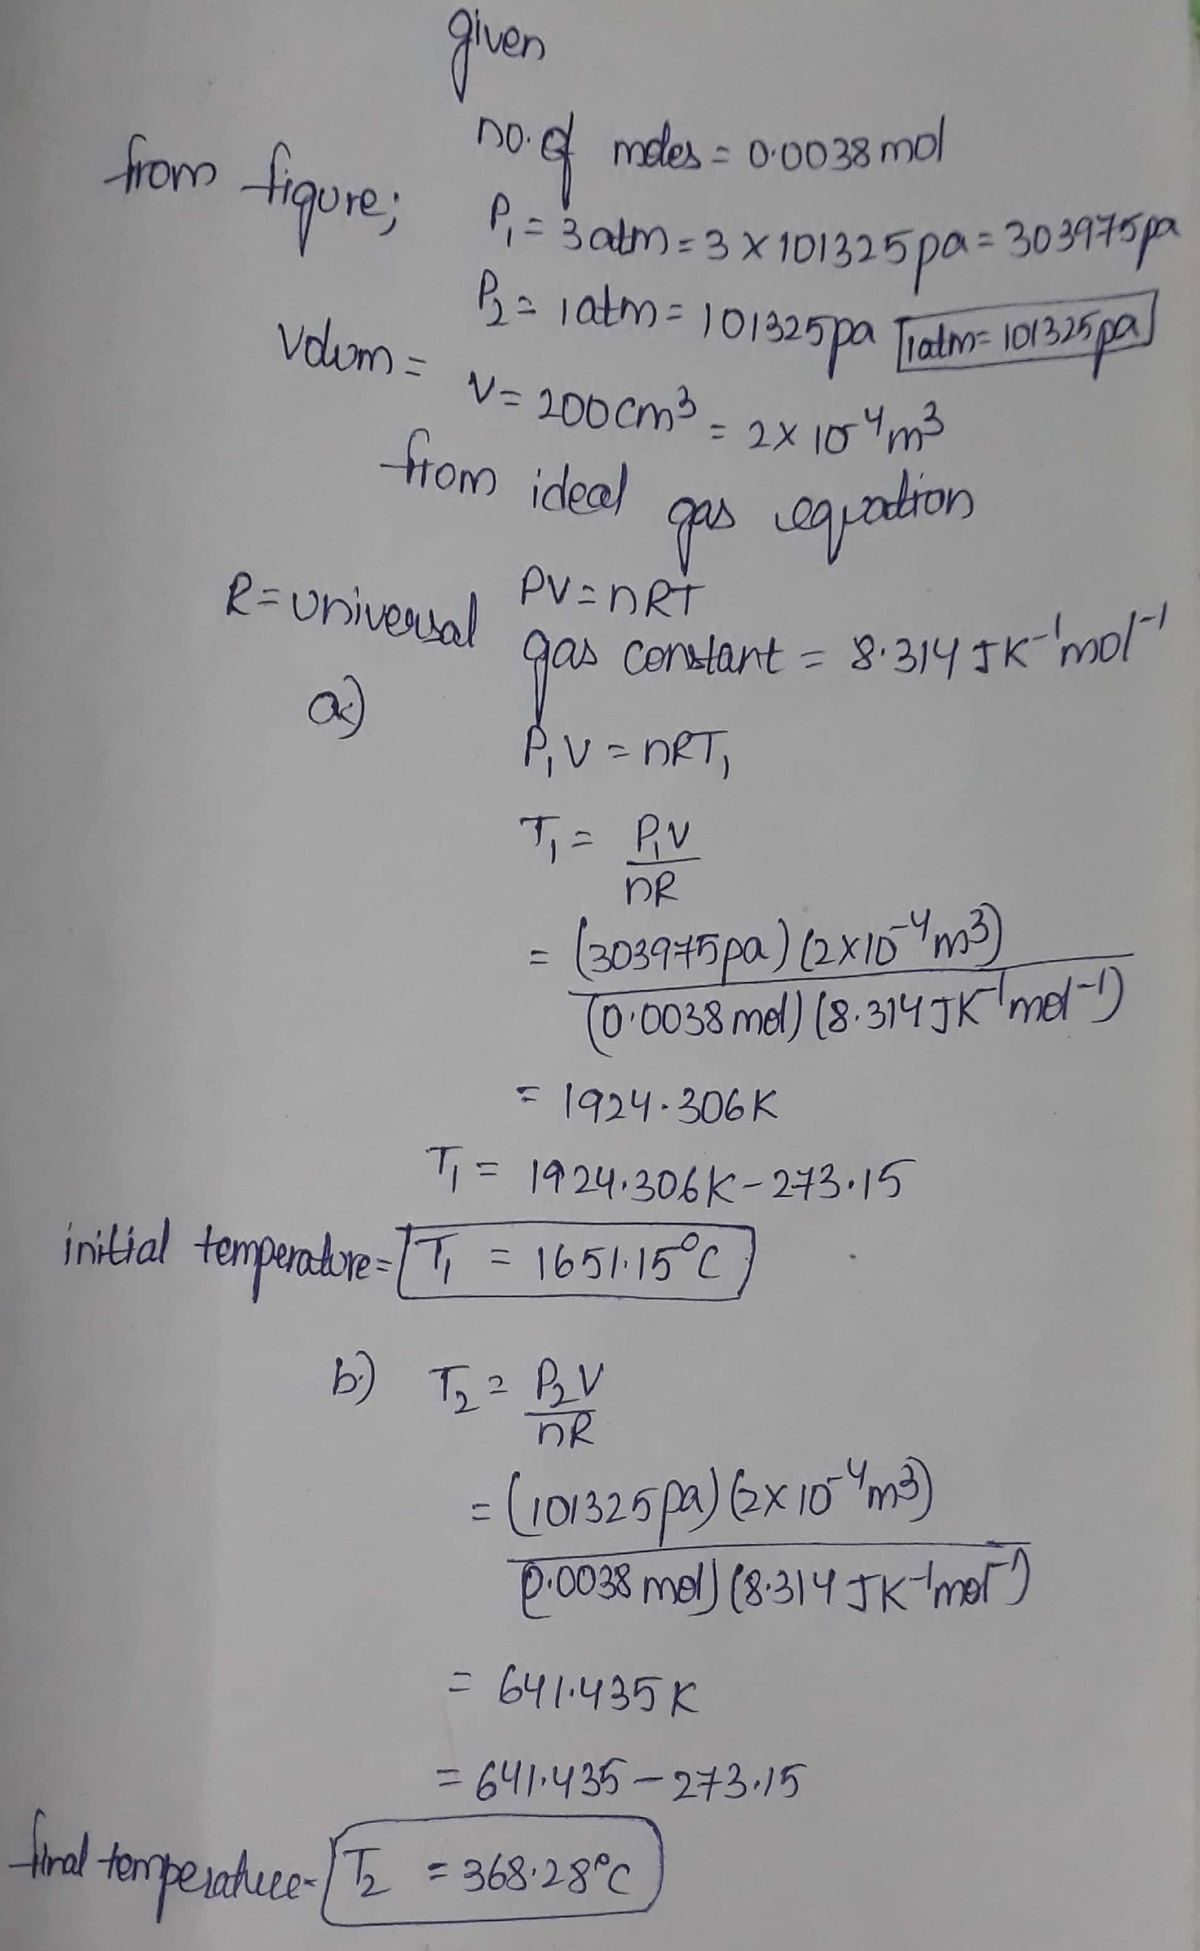 given
no. of moles = 0.0038 mol
from figure; P₁ = 3 atm = 3 × 101325 pa = 303975 pa
P₂ = 1 atm = 101325 pa [1 atm = 101325 pa]
Volum = V = 200 cm³ = 2 × 10⁻⁴ m³
from ideal gas equation
PV = nRT
R = universal gas constant = 8.314 JK⁻¹mol⁻¹
a.)
P₁V = nRT₁
T₁ = P₁V / nR
= (303975 pa) (2×10⁻⁴ m³) / (0.0038 mol) (8.314 JK⁻¹mol⁻¹)
= 1924.306 K
T₁ = 1924.306 K - 273.15
initial temperature = T₁ = 1651.15°C
b.) T₂ = P₂V / nR
= (101325 pa) (2×10⁻⁴ m³) / (0.0038 mol) (8.314 JK⁻¹mol⁻¹)
= 641.435 K
= 641.435 - 273.15
final temperature = T₂ = 368.28°C